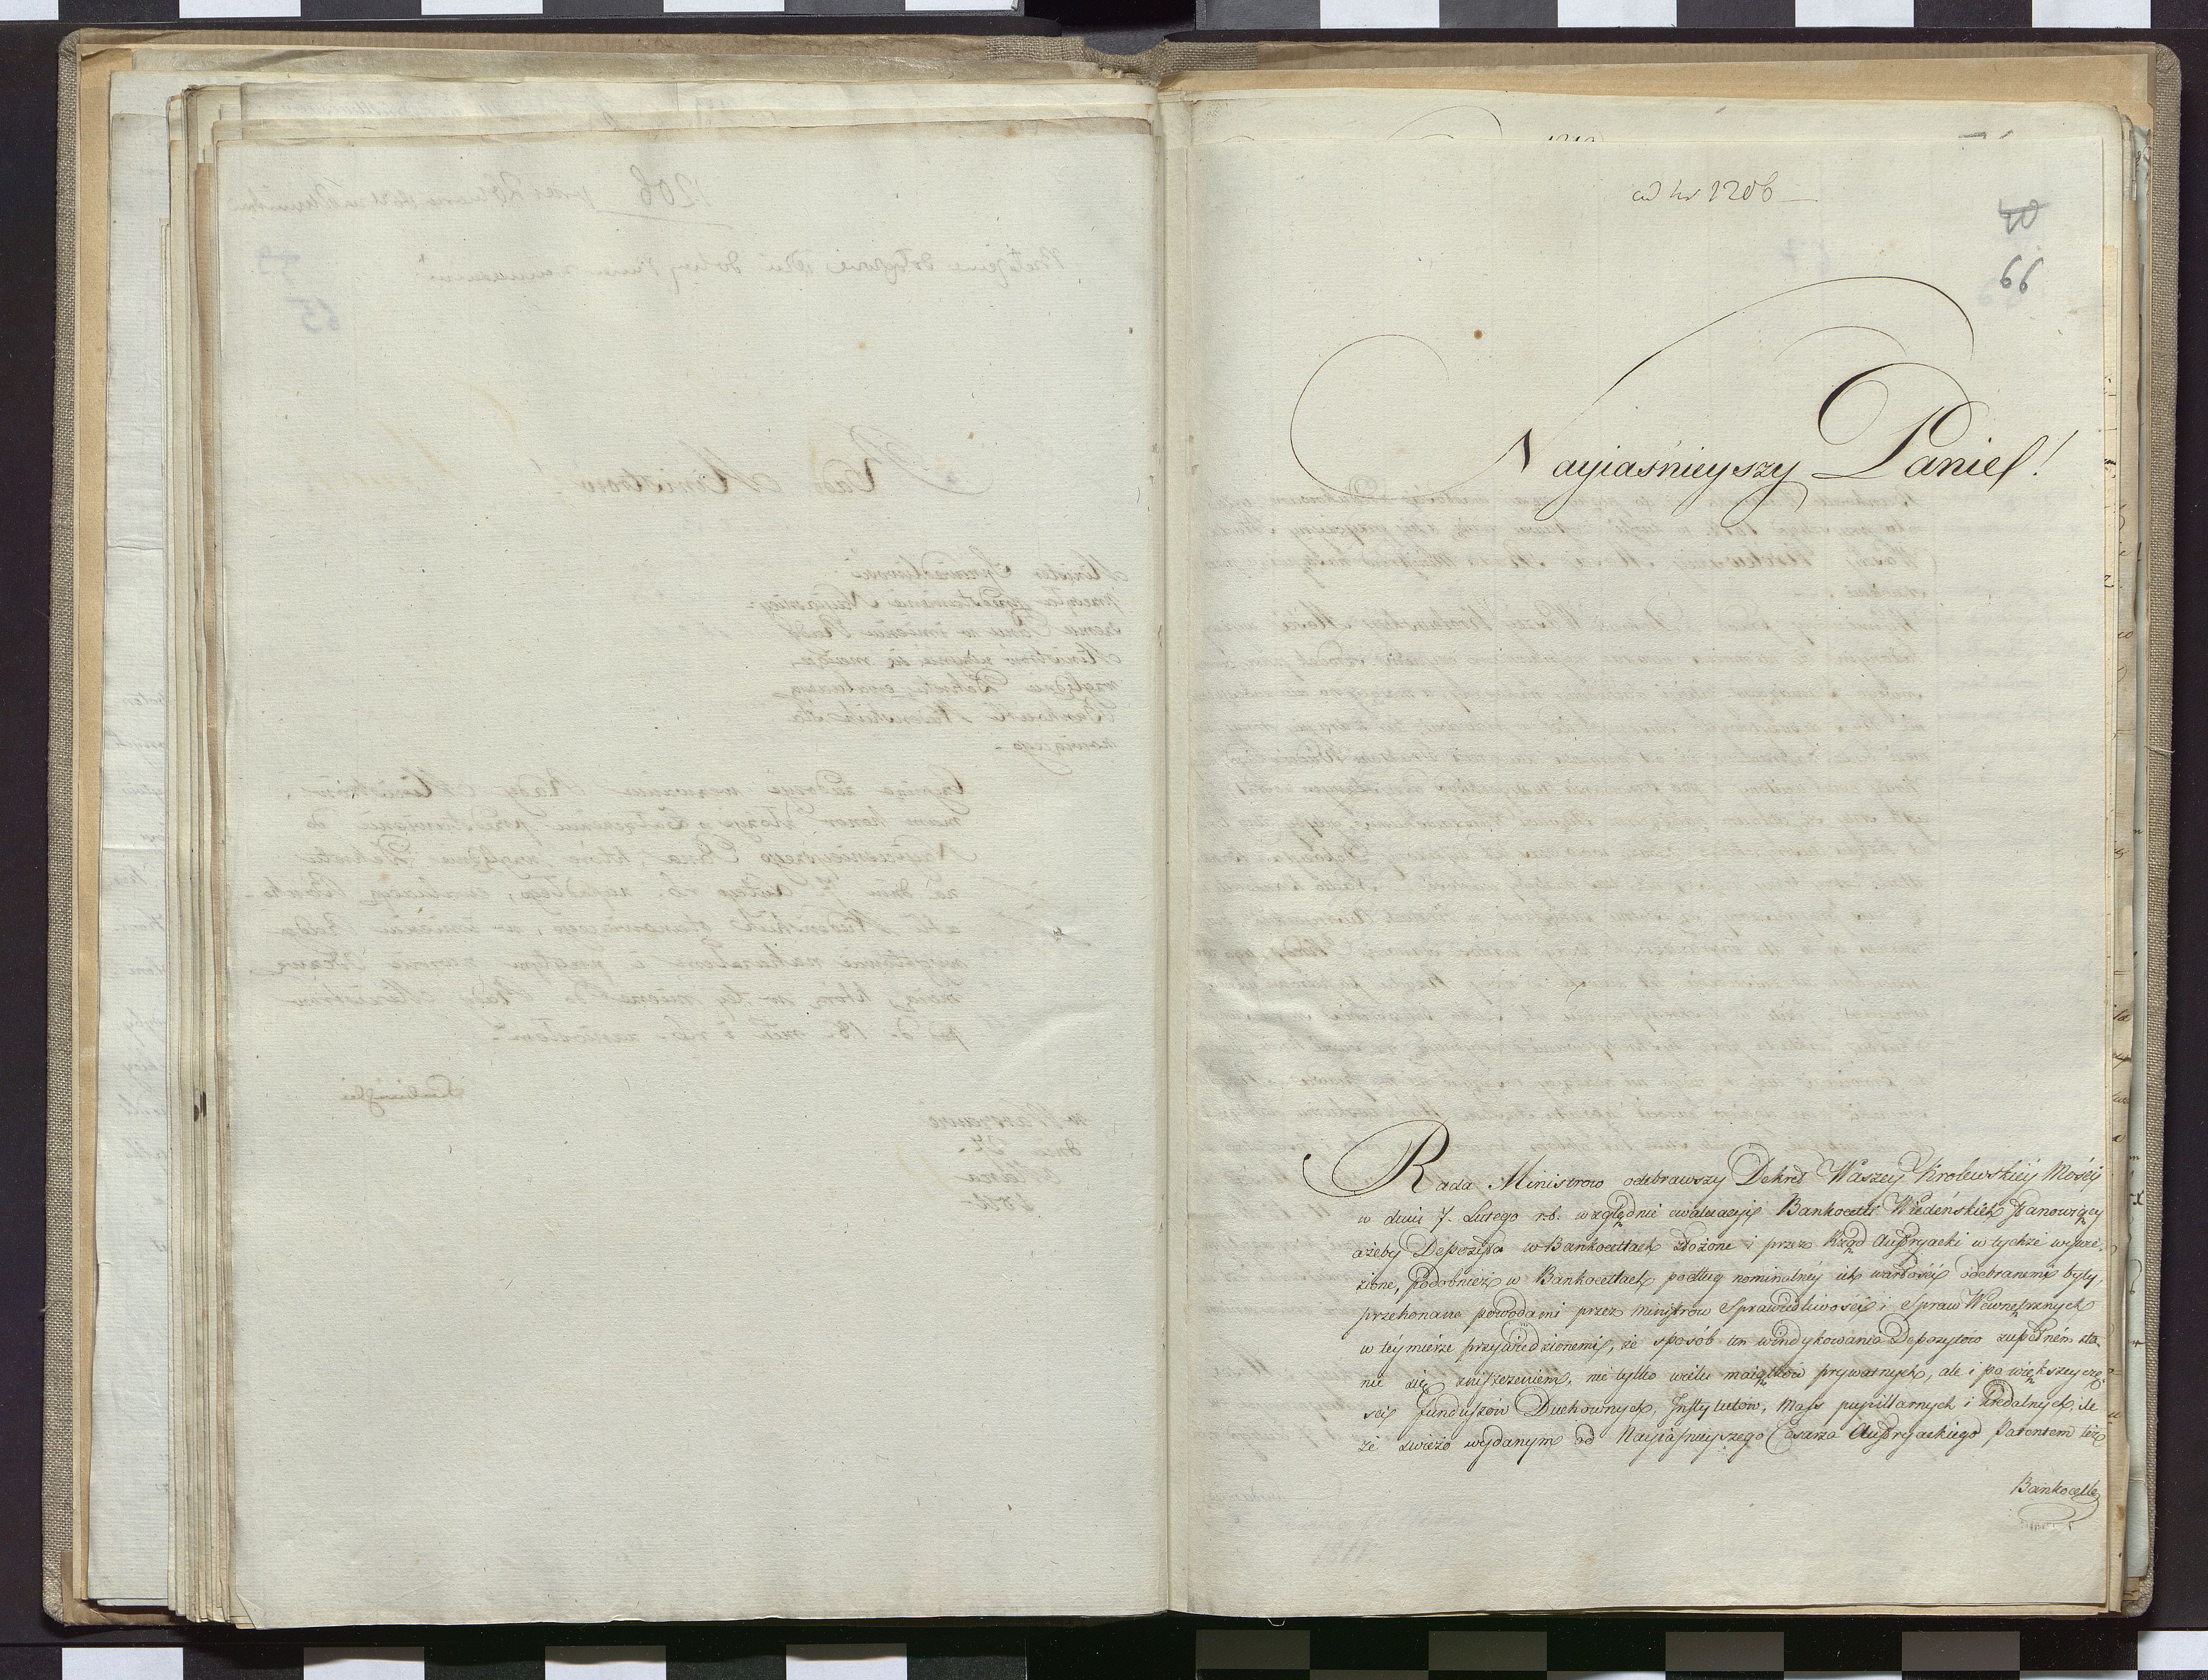 ad Nr 1206
40
66
Nayiaśnieyszy Panie!
Rada Ministrow odebrawszy Dekret Waszey Krolewskiéy Mości
w dniu 7. Lutego r.b. względnie ewaluacyi Bankocetli Wiedeńskich stanowiący
ażeby Depozyta w Bankocetlach złożone i przez Rząd Austryacki w tychże wywie-
zione, podobnież w Bankocetlach podług nominalnéy ich wartości odebranemi były,
przekonana powodami przez Ministrow Sprawiedliwości i Spraw Wewnętrznych
w téy mierze przywiedzionemi, że sposób ten windykowania Depozytow zupełném sta-
nie się zniszczeniem, nie tylko wielu maiątków prywatnych, ale i po większey czę-
ści funduszów Duchownych, Instytutów, Mass pupillarnych i kredalnych, ile
że świeżo wydanym od Nayiaśnieyszego Cesarza Austryackiego Patentem też
Bankocetle